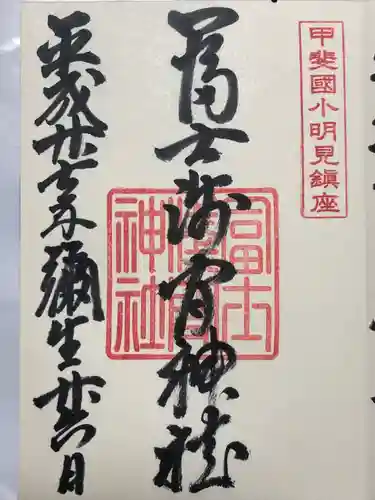 甲斐國小明見鎮座
冨士浅間神社
冨士浅間神社
平成廿七年彌生廿八日